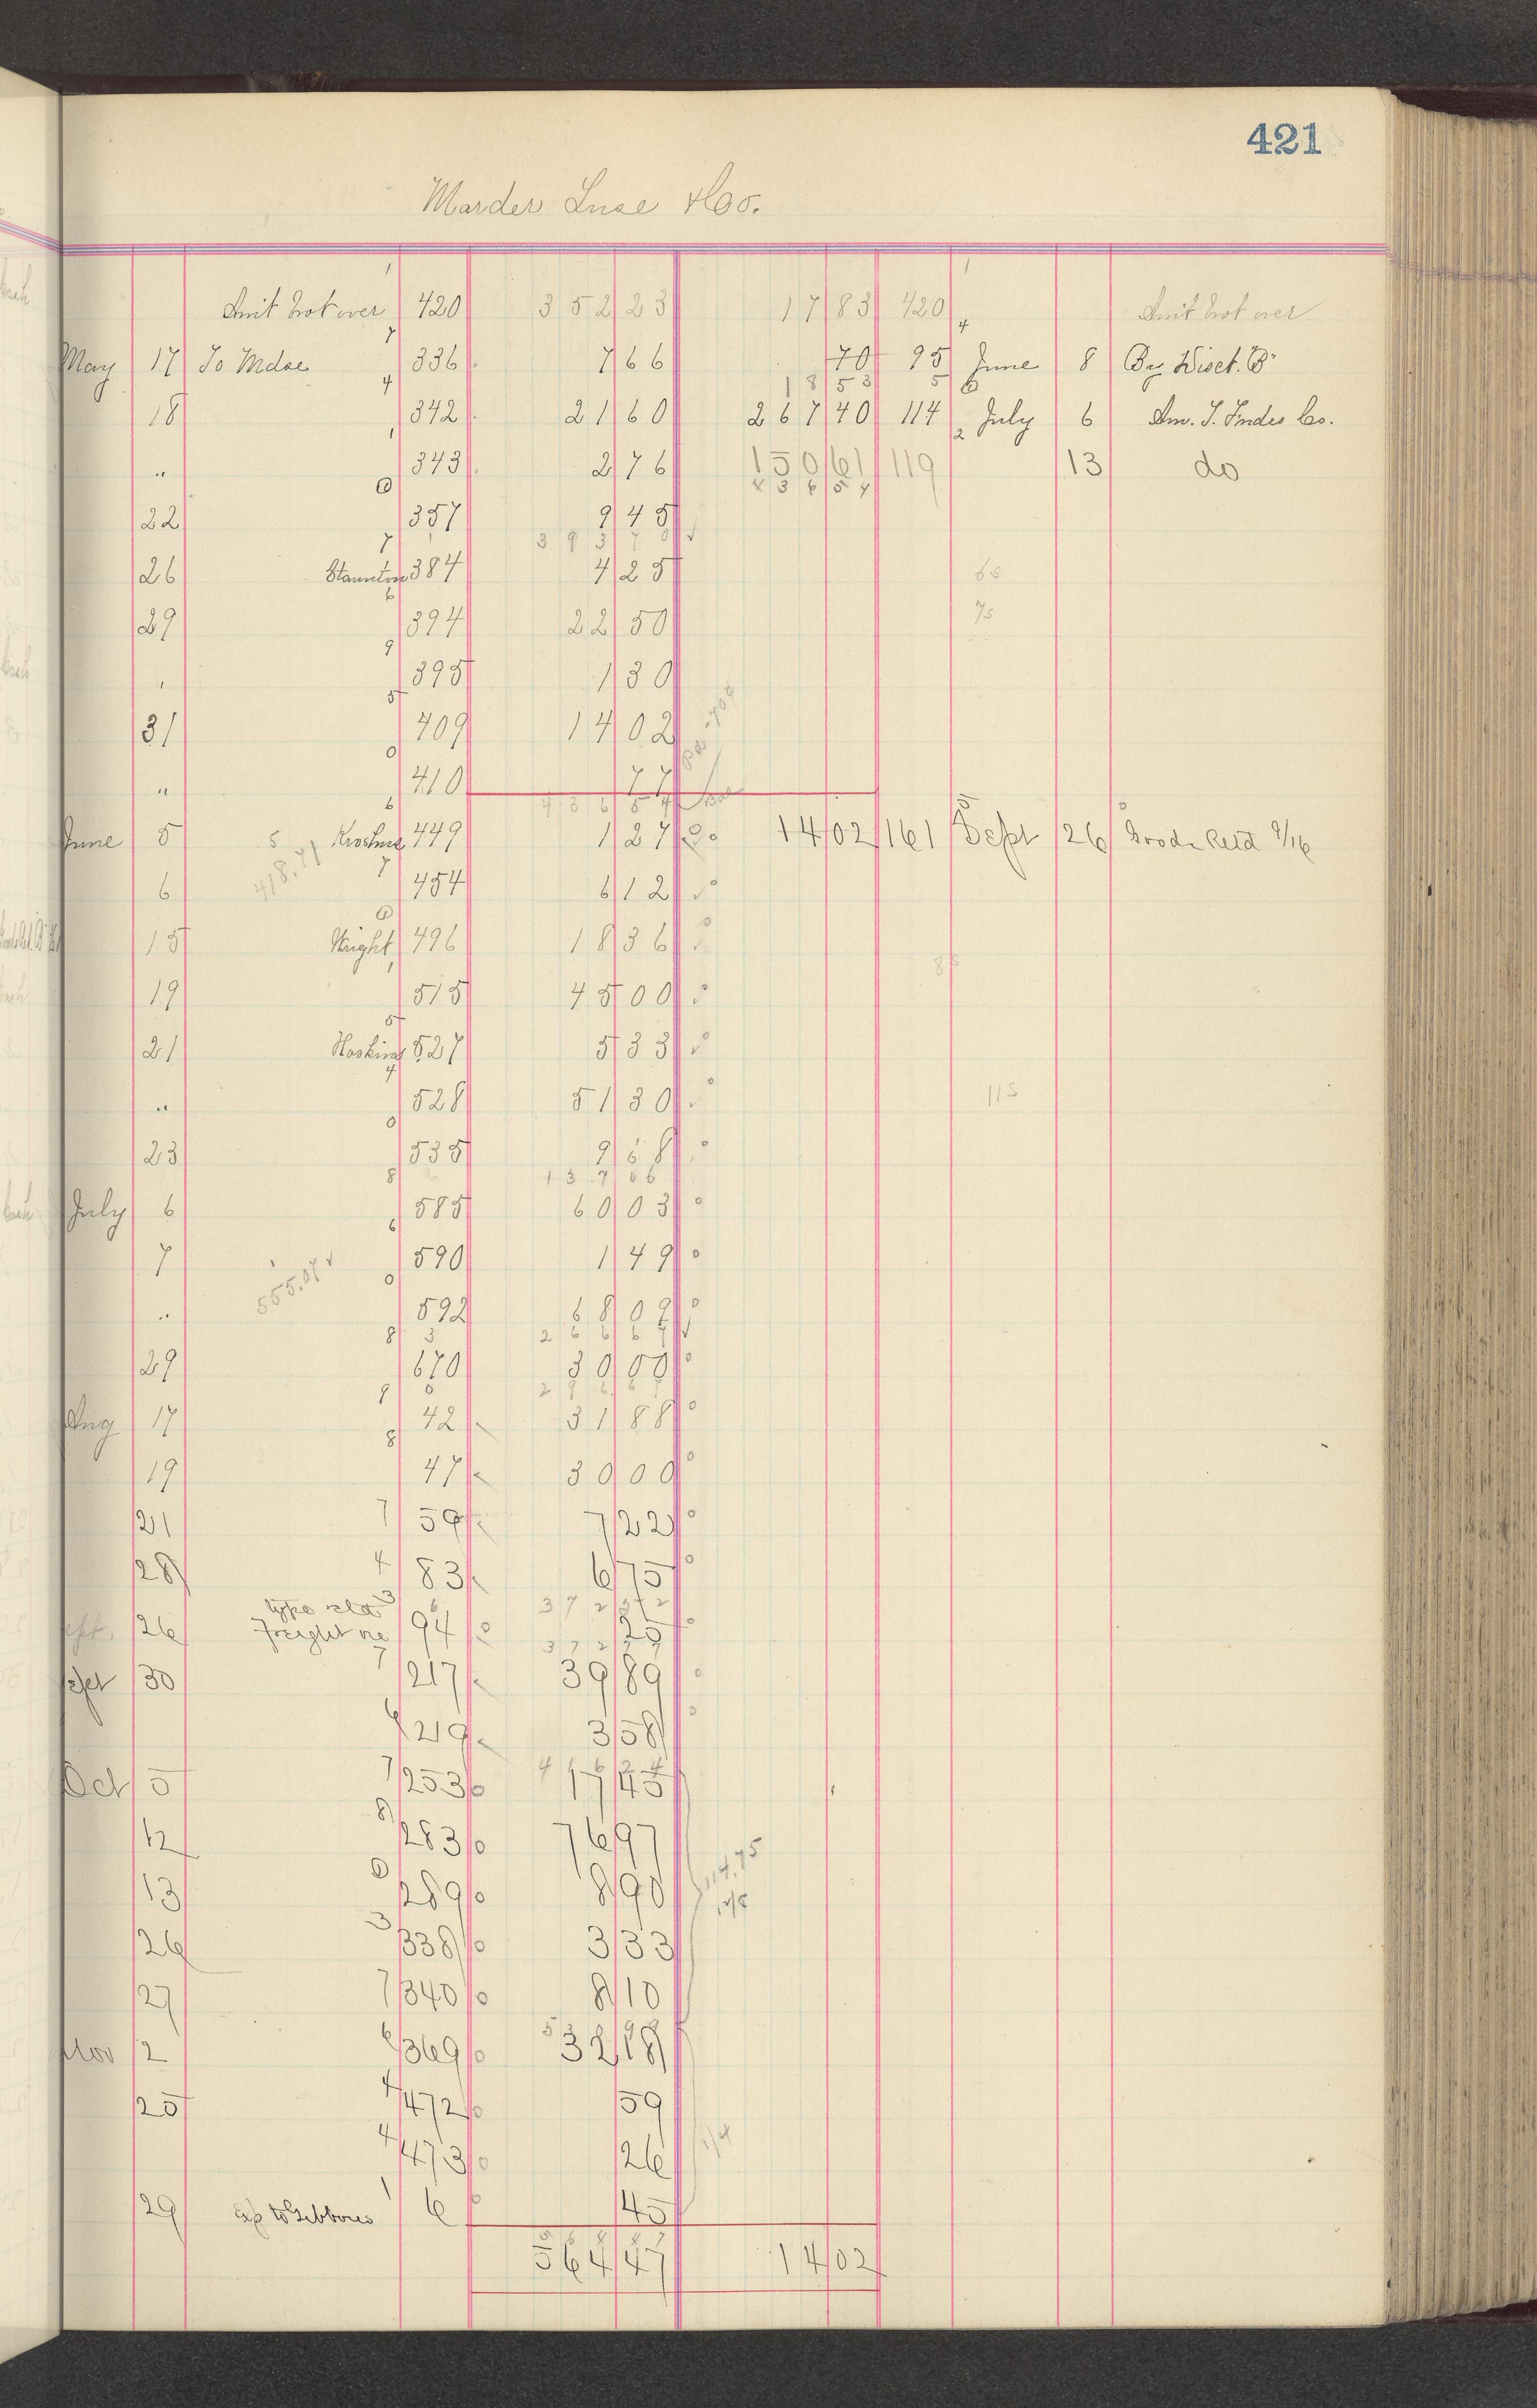 421
Marder Luse & Co.
Amt brot over 420 352 23 17 83 420 Amt brot over
May 17 To Mdse 336 7 66 70 95 June 8 By Disct. B
18 342 21 60 267 40 114 July 6 Am. T. Fndes Co.
" 343 2 76 150 61 119 13 do
22 357 9 45
26 Staunton 384 4 25 65
29 394 22 50 75
" 395 1 30
31 409 14 02
" 410 77
436 54
June 5 449 1 27 14 02 161 Sept 26 9/16
418.71
6 454 6 12
15 Wright 496 18 36
19 515 45 00
21 Hoskins 527 5 33
" 528 51 30 115
23 535 9 68
July 6 585 60 03
7 590 1 49
555.07
" 592 68 09
29 670 30 00
Aug 17 42 31 88
19 47 30 00
21 59 7 22
28 83 6 75
372 52
Sept. 26 type
freight 94 25
Sept 30 217 39 89
219 3 58
Oct 5 253 17 45
12 283 76 97
13 289 8 90 114.75
26 338 3 33
27 340 8 10
Nov 2 369 32 18
25 472 59
473 26
29 to Gibbons 6 45
564 47 14 02